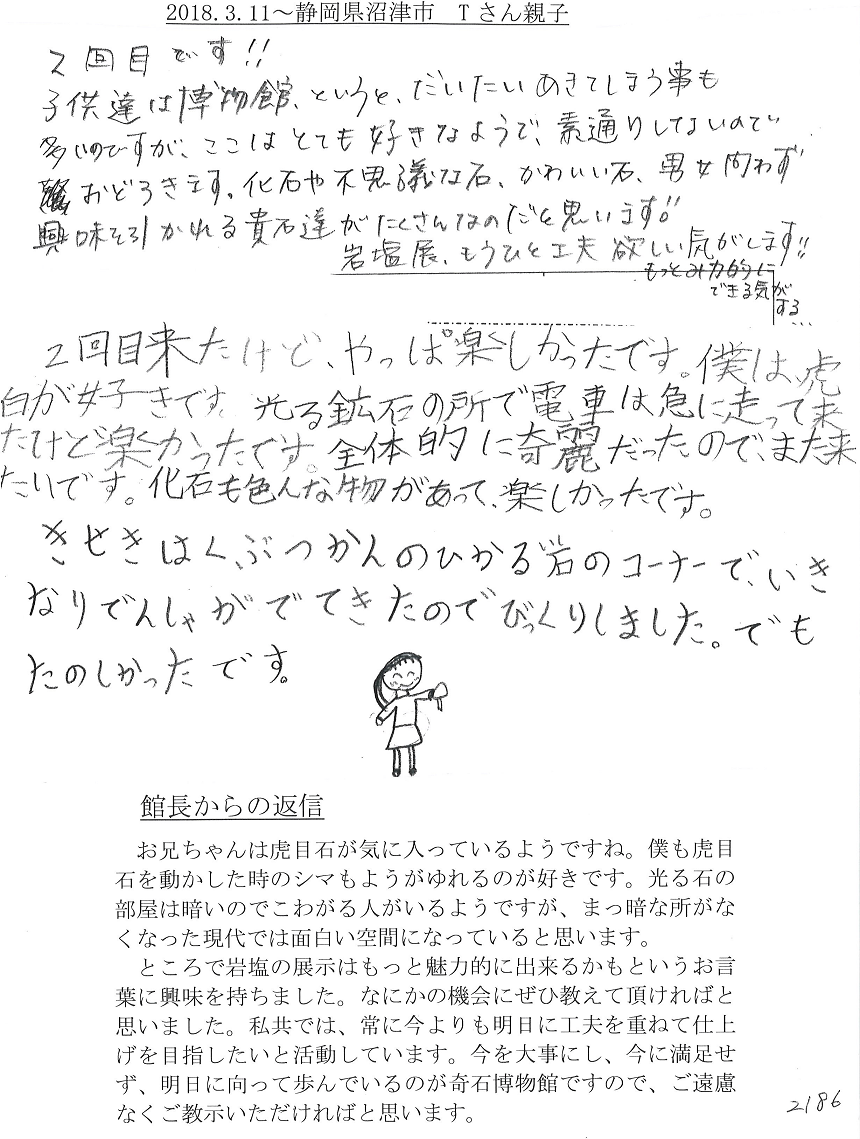 2018.3.11～静岡県沼津市　Tさん親子
2回目です!!
子供達は博物館、というと、だいたいあきてしまう事も
多いのですが、ここはとても好きなようで、素通りしてないので
おどろきます。化石や不思議な石、かわいい石、男女問わず
興味そそ引かれる貴石達がたくさんなのだと思います!!
岩塩展、もうひと工夫欲しい気がします!!
もっとみ力的に
できる気が
する...
2回目来たけど、やっぱ楽しかったです。僕は、虎
白が好きです。光る鉱石の所で電車は急に走って来
たけど楽かったです。全体的に奇麗だったので、また来
たいです。化石も色んな物があって、楽しかったです。
きせきはくぶつかんのひかる岩のコーナーで、いき
なりでんしゃがでてきたのでびっくりしました。でも
たのしかったです。
館長からの返信
お兄ちゃんは虎目石が気に入っているようですね。僕も虎目
石を動かした時のシマもようがゆれるのが好きです。光る石の
部屋は暗いのでこわがる人がいるようですが、まっ暗な所がな
くなった現代では面白い空間になっていると思います。
ところで岩塩の展示はもっと魅力的に出来るかもというお言
葉に興味を持ちました。なにかの機会にぜひ教えて頂ければと
思いました。私共では、常に今よりも明日に工夫を重ねて仕上
げを目指したいと活動しています。今を大事にし、今に満足せ
ず、明日に向って歩んでいるのが奇石博物館ですので、ご遠慮
なくご教示いただければと思います。
2186